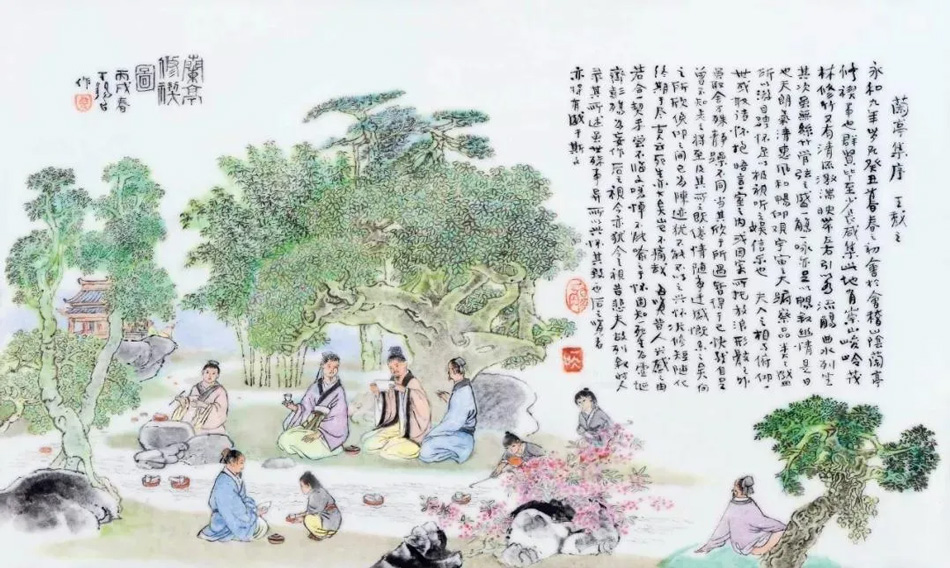 蘭亭集序 王羲之
永和九年歲在癸丑暮春之初會於會稽山陰蘭亭
修禊事也群賢畢至少長咸集此地有崇山峻岭茂
林修竹又有清流激湍映帶左右引以為流觴曲水列坐
其次雖無絲竹管弦之盛一觴一詠亦足以暢叙幽情是日
也天朗氣清惠風和暢仰觀宇宙之大俯察品類之盛
所以游目騁怀足以極視聽之娛信可樂也 夫人之相與俯仰
一世或取諸怀抱晤言一室之內或因寄所託放浪形骸之外
雖取舍万殊靜躁不同當其欣於所遇暫得于己快然自足
曾不知老之將至及其所之既倦情隨事遷感慨系之矣向
之所欣俯仰之間已為陳迹犹不能不以之興怀况修短隨化
終期于盡古人云死生亦大矣豈不痛哉 每覽昔人興感之由
若合一契未嘗不臨文嗟悼不能喻之于怀固知死生為虛誕
齊彭殤為妄作后之視今亦犹今之視昔悲夫故列叙時人
录其所述雖世殊事异所以興怀其致一也后之覽者
亦將有感于斯文
蘭亭
修禊
圖
丙戌春
作